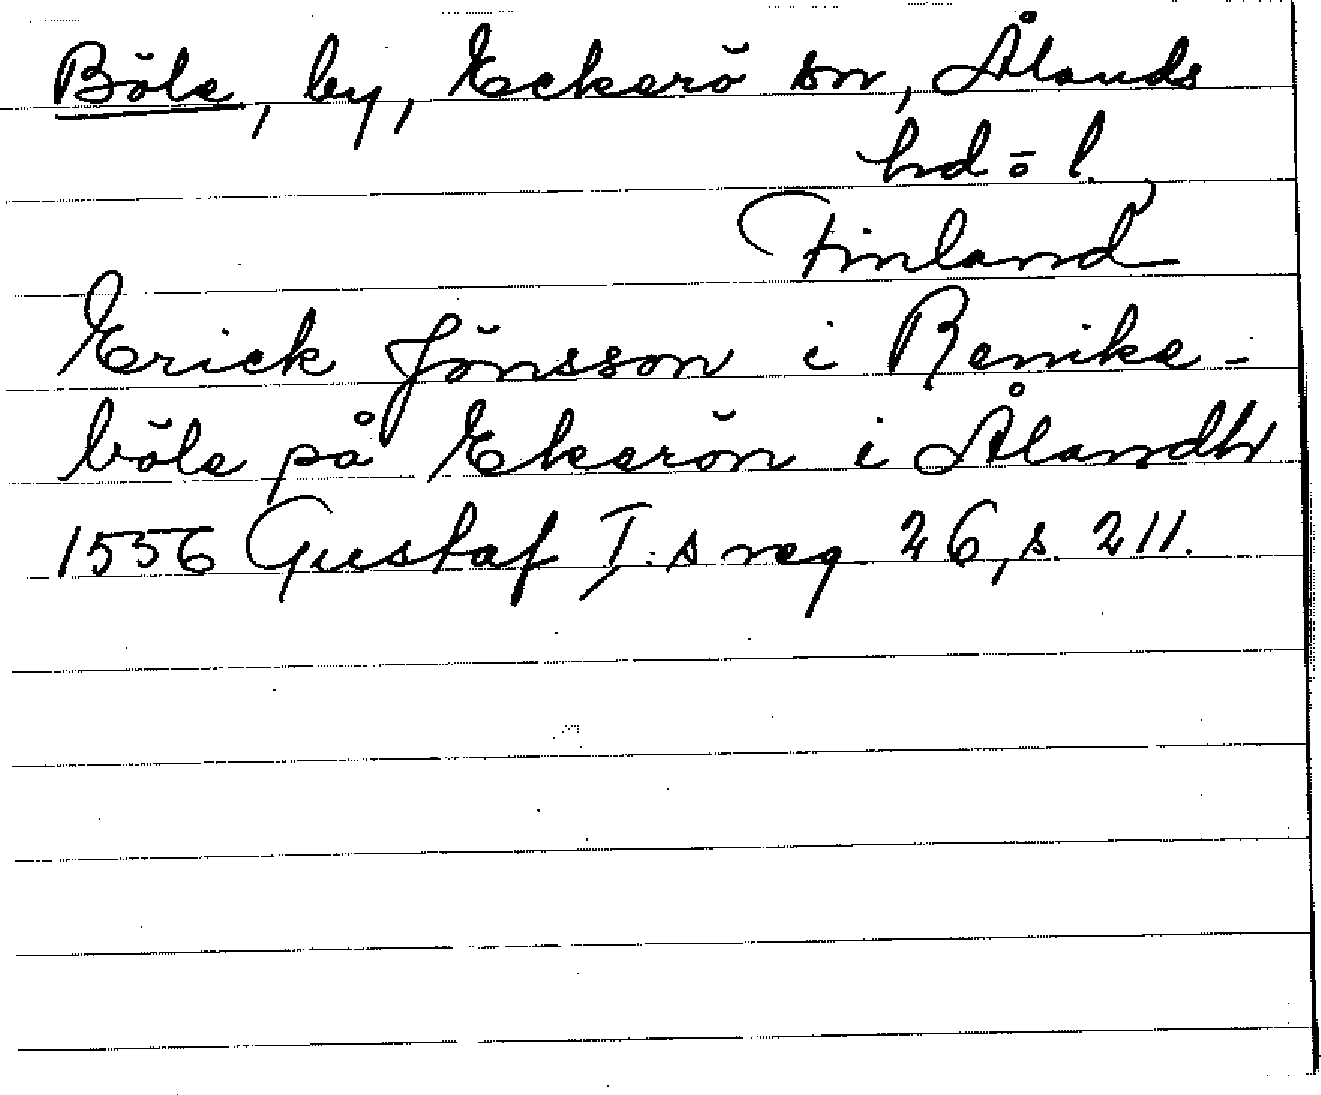 Böle, by, Eckerö sn, Ålands
hd o l.,
Finland
Erick Jönsson i Renike-
böle på Ekerön i Ålandh
1556 Gustaf I:s reg 26, s. 211.